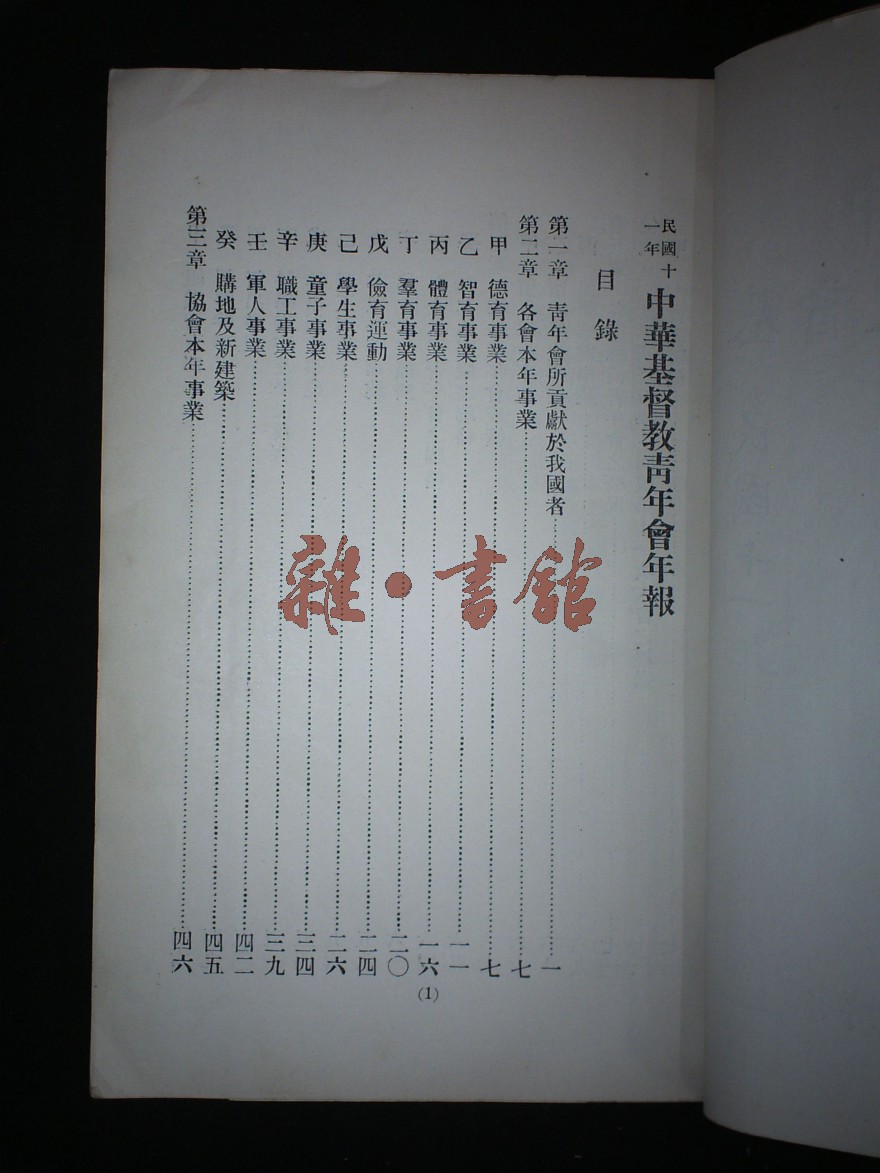 民國十一年 中華基督教靑年會年報
目錄
第一章 靑年會所貢獻於我國者……一
第二章 各會本年事業……七
甲 德育事業……七
乙 智育事業……一一
丙 體育事業……一六
丁 羣育事業……二〇
戊 儉育運動……二四
己 學生事業……二六
庚 童子事業……三四
辛 職工事業……三九
壬 軍人事業……四二
癸 購地及新建築……四五
第三章 協會本年事業……四六
(1)
雜·書館